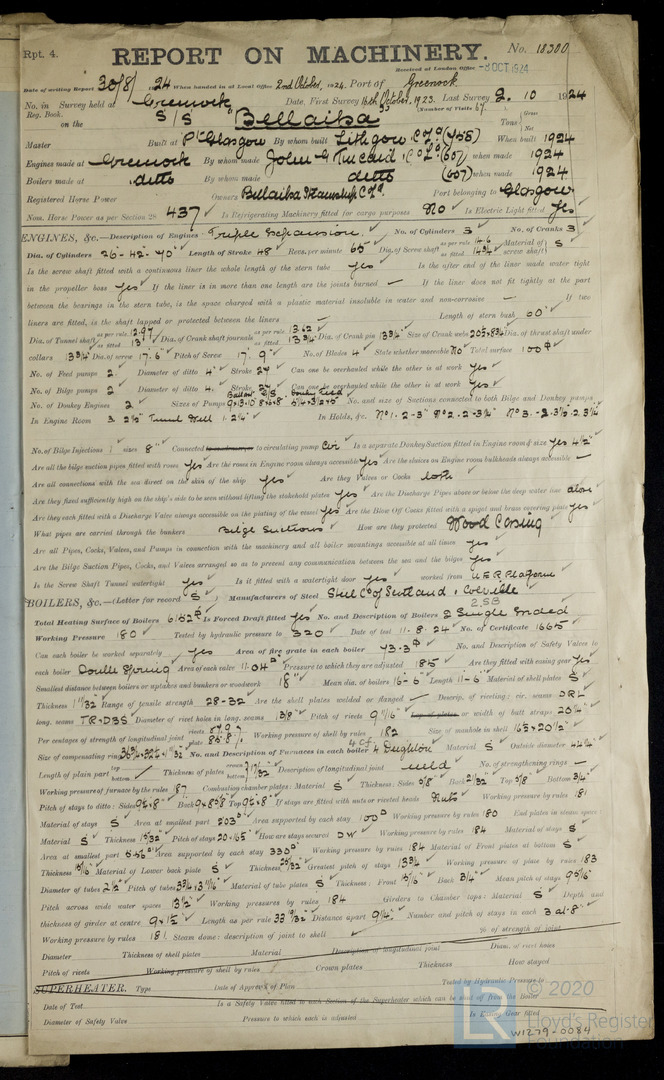 Rpt. 4.
REPORT ON MACHINERY. No. 18300
Received at London Office -8 OCT 1924
Date of writing Report 30/8/1924 When handed in at Local Office 2nd October, 1924. Port of Greenock
No. in Survey held at Greenock Date, First Survey 16th October, 1923. Last Survey 2. 10 1924
Reg. Book. (Number of Visits 67.
on the S/S "Bellailsa" Tons Gross Net
Master Built at Pt Glasgow By whom built Lithgow When built 1924
Engines made at Greenock By whom made John G Kincaid & Co Ld (607) when made 1924
Boilers made at ditto By whom made ditto (607) when made 1924
Registered Horse Power Owners Bellailsa Steamship Co Ld. Port belonging to Glasgow
Nom. Horse Power as per Section 28 437 Is Refrigerating Machinery fitted for cargo purposes No Is Electric Light fitted Yes
ENGINES, &c.—Description of Engines Triple Expansion No. of Cylinders 3 No. of Cranks 3
Dia. of Cylinders 26-42-70" Length of Stroke 48 Revs. per minute 65 Dia. of Screw shaft as per rule 14.6 as fitted 14 3/4 Material of screw shaft S
Is the screw shaft fitted with a continuous liner the whole length of the stern tube Yes Is the after end of the liner made water tight
in the propeller boss Yes If the liner is in more than one length are the joints burned — If the liner does not fit tightly at the part
between the bearings in the stern tube, is the space charged with a plastic material insoluble in water and non-corrosive — If two
liners are fitted, is the shaft lapped or protected between the liners — Length of stern bush 60"
Dia. of Tunnel shaft as per rule 12.97 as fitted 13" Dia. of Crank shaft journals as per rule 13.62 as fitted 13 3/4 Dia. of Crank pin 13 3/4 Size of Crank webs Dia. of thrust shaft under
collars 13 3/4 Dia. of screw 17'.6" Pitch of Screw 17'. 9" No. of Blades 4 State whether moveable No Total surface 100
No. of Feed pumps 2 Diameter of ditto 4 Stroke 27 Can one be overhauled while the other is at work Yes
No. of Bilge pumps 2 Diameter of ditto 4. Stroke 27 Can one be overhauled while the other is at work Yes
No. of Donkey Engines 2 Sizes of Pumps No. and size of Suctions connected to both Bilge and Donkey pumps
In Engine Room 3. 2 1/2 Tunnel Well 1. 2 1/4 In Holds, &c.
No. of Bilge Injections 1 sizes 8" Connected to circulating pump Cir Is a separate Donkey Suction fitted in Engine room & size Yes 4 1/2
Are all the bilge suction pipes fitted with roses Yes Are the roses in Engine room always accessible Yes Are the sluices on Engine room bulkheads always accessible —
Are all connections with the sea direct on the skin of the ship Yes Are they Valves or Cocks both
Are they fixed sufficiently high on the ship's side to be seen without lifting the stokehold plates Yes Are the Discharge Pipes above or below the deep water line above
Are they each fitted with a Discharge Valve always accessible on the plating of the vessel Yes Are the Blow Off Cocks fitted with a spigot and brass covering plate Yes
What pipes are carried through the bunkers Bilge Suctions How are they protected Wood Casing
Are all Pipes, Cocks, Valves, and Pumps in connection with the machinery and all boiler mountings accessible at all times Yes
Are the Bilge Suction Pipes, Cocks, and Valves arranged so as to prevent any communication between the sea and the bilges Yes
Is the Screw Shaft Tunnel watertight Yes Is it fitted with a watertight door Yes worked from U.E.R. Platform
BOILERS, &c.—(Letter for record S) Manufacturers of Steel Steel Co of Scotland & Colville
2.SB
Total Heating Surface of Boilers 6152 Is Forced Draft fitted Yes No. and Description of Boilers 2 Single Ended
Working Pressure 180 Tested by hydraulic pressure to 320 Date of test 11.8.24 No. of Certificate 1665
Can each boiler be worked separately Yes Area of fire grate in each boiler 73.3 No. and Description of Safety Valves to
each boiler Double Spring Area of each valve 11.04 Pressure to which they are adjusted 185 Are they fitted with easing gear Yes
Smallest distance between boilers or uptakes and bunkers or woodwork 18" Mean dia. of boilers 16-6 Length 11-6 Material of shell plates S
Thickness 1 11/32 Range of tensile strength 28-32 Are the shell plates welded or flanged — Descrip. of riveting: cir. seams D R L
long. seams TR.DBS Diameter of rivet holes in long. seams 1 3/8 Pitch of rivets 9 7/16 or width of butt straps 20 1/4
Per centages of strength of longitudinal joint rivets 87.9 plate 85.8 Working pressure of shell by rules 182 Size of manhole in shell
Size of compensating ring No. and Description of Furnaces in each boiler 4 Deighton Material S Outside diameter
Length of plain part top bottom Thickness of plates crown bottom 17/32 Description of longitudinal joint weld No. of strengthening rings —
Working pressure of furnace by the rules 187 Combustion chamber plates: Material S Thickness: Sides 5/8 Back 21/32 Top 5/8 Bottom 3/4
Pitch of stays to ditto: Sides Back Top If stays are fitted with nuts or riveted heads Nuts Working pressure by rules 181
Material of stays S Area at smallest part 2.03 Area supported by each stay Working pressure by rules 180 End plates in steam space:
Material S Thickness 1 5/32 Pitch of stays How are stays secured DW Working pressure by rules 184 Material of stays S
Area at smallest part Area supported by each stay 330 Working pressure by rules 184 Material of Front plates at bottom S
Thickness 15/16 Material of Lower back plate S Thickness 25/32 Greatest pitch of stays 13 3/4 Working pressure of plate by rules 183
Diameter of tubes 2 1/2 Pitch of tubes Material of tube plates S Thickness: Front 15/16 Back 3/4 Mean pitch of stays
Pitch across wide water spaces 13 1/2 Working pressures by rules 184 Girders to Chamber tops: Material S Depth and
thickness of girder at centre 9 x 1 1/2 Length as per rule Distance apart 9 1/4 Number and pitch of stays in each 3 at 8"
Working pressure by rules 181 Steam dome: description of joint to shell % of strength of joint
Diameter Thickness of shell plates Material Description of longitudinal joint Diam. of rivet holes
Pitch of rivets Working pressure of shell by rules Crown plates Thickness How stayed
SUPERHEATER. Type Date of Approval of Plan Tested by Hydraulic Pressure to
Date of Test Is a Safety Valve fitted to each Section of the Superheater which can be shut off from the Boiler
Diameter of Safety Valve Pressure to which each is adjusted Is Easing Gear fitted
© 2020
LR Lloyd's Register
Foundation
W1279-0084